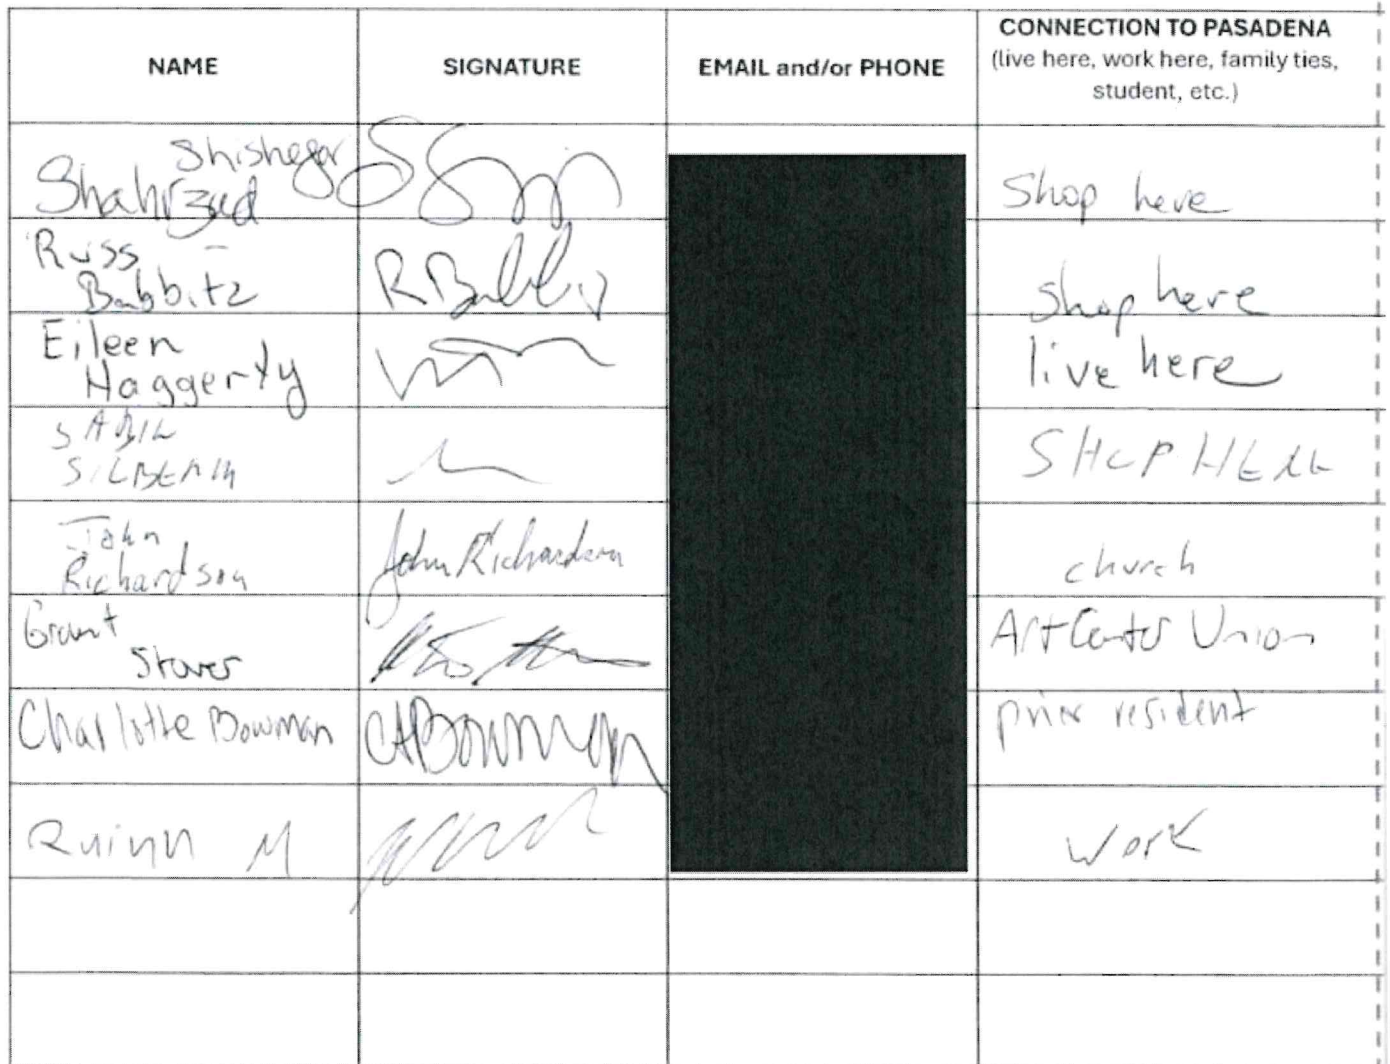 NAME SIGNATURE EMAIL and/or PHONE CONNECTION TO PASADENA
(live here, work here, family ties,
student, etc.)
Shishegar
Shahrzad Shop here
Russ
Babbitz R Babbitz shop here
Eileen
Haggerty live here
SHOP HERE
John
Richardson John Richardson church
Grant
Stover ArtCenter Union
Charlotte Bowman CABowman prior resident
Quinn M work